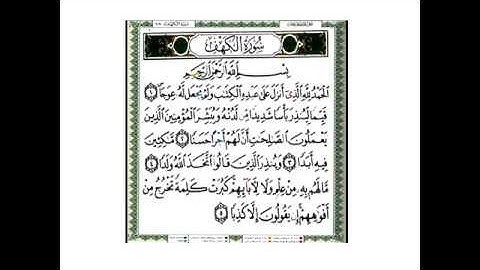 سُورَةُ الكَهْفِ
بِسْمِ اللَّهِ الرَّحْمَٰنِ الرَّحِيمِ
الْحَمْدُ لِلَّهِ الَّذِي أَنزَلَ عَلَىٰ عَبْدِهِ الْكِتَٰبَ وَلَمْ يَجْعَل لَّهُ عِوَجًا ١
قَيِّمًا لِّيُنذِرَ بَأْسًا شَدِيدًا مِّن لَّدُنْهُ وَيُبَشِّرَ الْمُؤْمِنِينَ الَّذِينَ
يَعْمَلُونَ الصَّٰلِحَٰتِ أَنَّ لَهُمْ أَجْرًا حَسَنًا ٢ مَّٰكِثِينَ
فِيهِ أَبَدًا ٣ وَيُنذِرَ الَّذِينَ قَالُوا اتَّخَذَ اللَّهُ وَلَدًا ٤
مَّا لَهُم بِهِ مِنْ عِلْمٍ وَلَا لِآبَائِهِمْ كَبُرَتْ كَلِمَةً تَخْرُجُ مِنْ
أَفْوَٰهِهِمْ إِن يَقُولُونَ إِلَّا كَذِبًا ٥